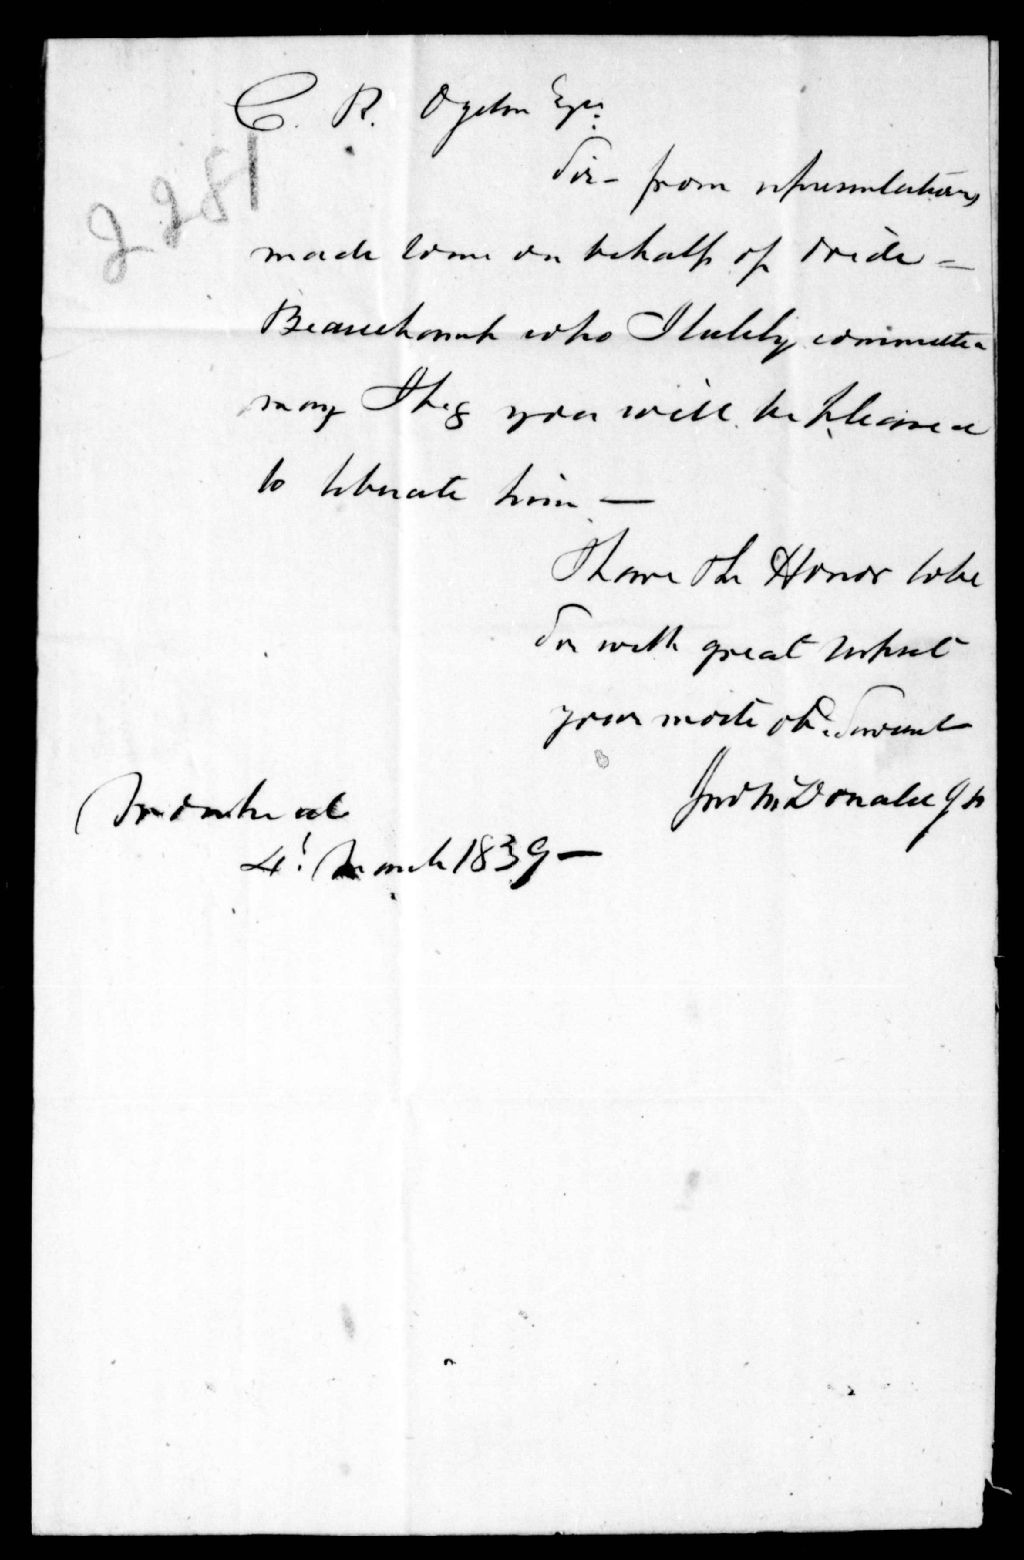 C. R. Ogden Esqr.
2281
Sir — from representations
made to me on behalf of
Beauchamp who I lately committed
may I beg you will be pleased
to liberate him —
I have the Honor to be
Sir with great respect
your most obt. Servant
Jno McDonald JP
Montreal
4t. March 1839 —